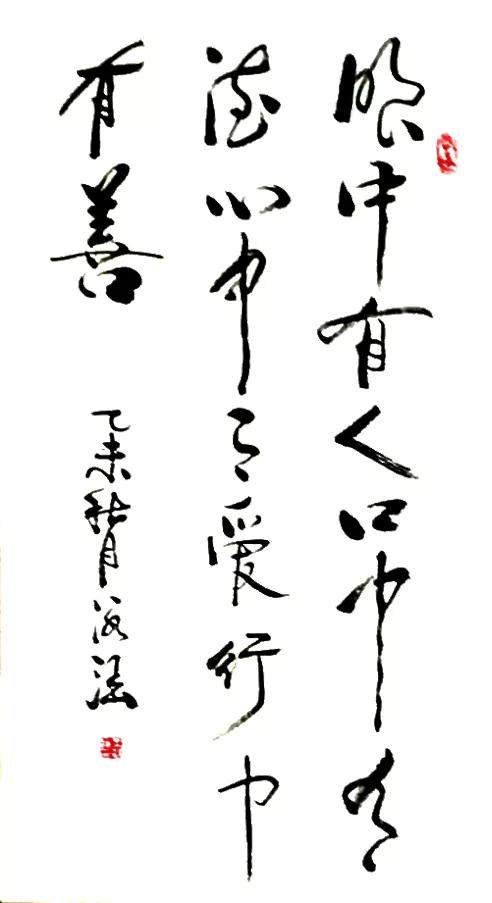 眼中有人口中有
德心中有爱行中
有善
乙未秋月